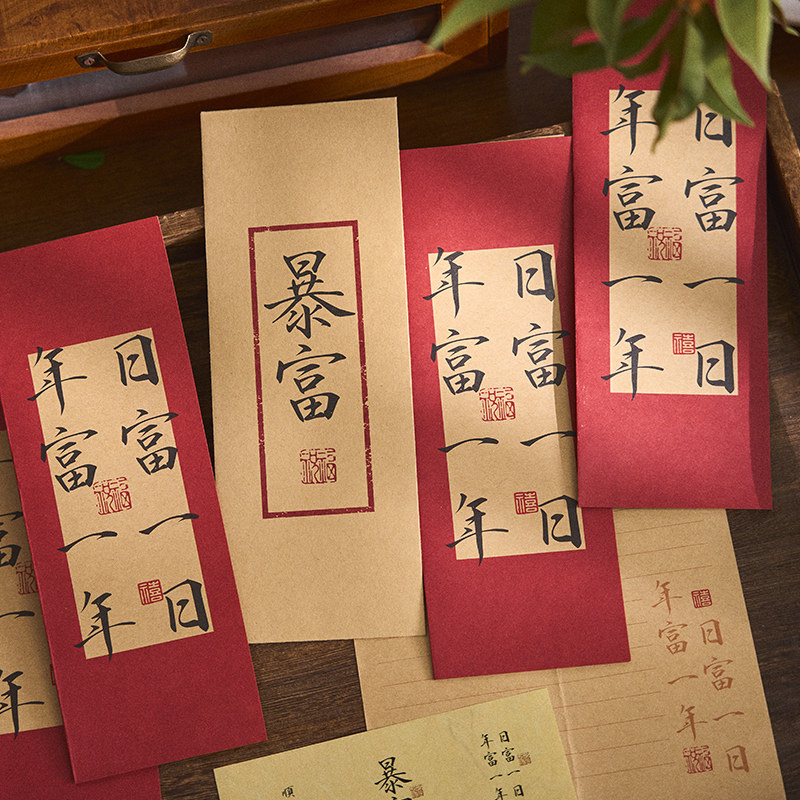 日富一日
年富一年
禧
暴富
日富一日
年富一年
禧
日富一日
年富一年
禧
富一年
日富一日
年富一年
禧
日富一日
年富一年
暴富
順